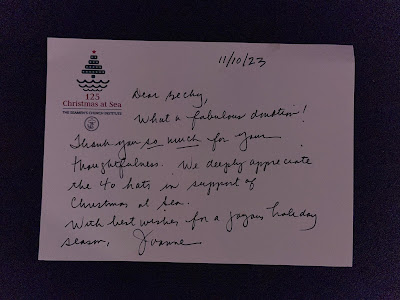 11/10/23
125
Christmas at Sea
THE SEAMEN'S CHURCH INSTITUTE
Dear Becky,
What a fabulous donation!
Thank you so much for your
thoughtfulness. We deeply appreciate
the 40 hats in support of
Christmas at Sea.
With best wishes for a joyous holiday
season, Joanne